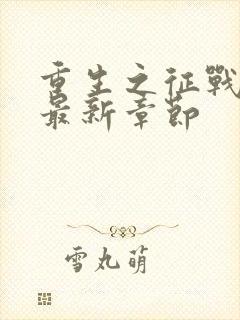 重生之征戰
最新章節
雪丸萌